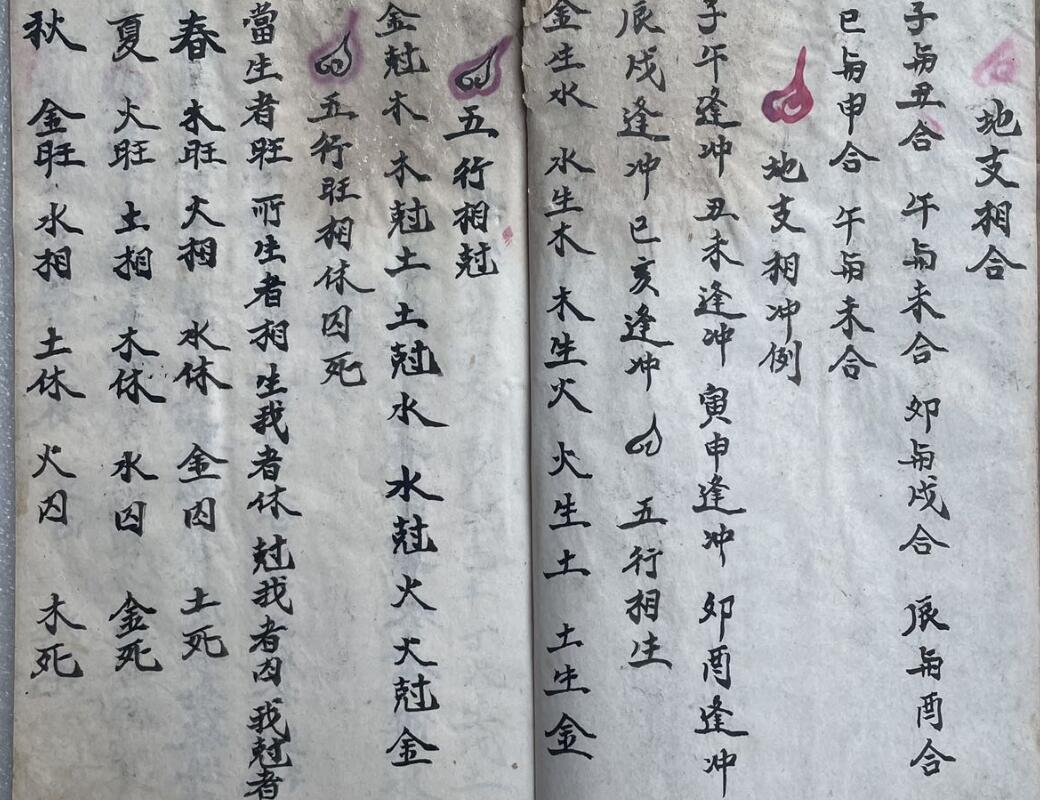 地支相合
子与丑合 午与未合 卯与戌合 辰与酉合
巳与申合 午与未合
地支相冲例
子午逢冲 丑未逢冲 寅申逢冲 卯酉逢冲
辰戌逢冲 巳亥逢冲 五行相生
金生水 水生木 木生火 火生土 土生金
五行相尅
金尅木 木尅土 土尅水 水尅火 火尅金
五行旺相休囚死
當生者旺 所生者相 生我者休 尅我者囚 我尅者
春 木旺 火相 水休 金囚 土死
夏 火旺 土相 木休 水囚 金死
秋 金旺 水相 土休 火囚 木死